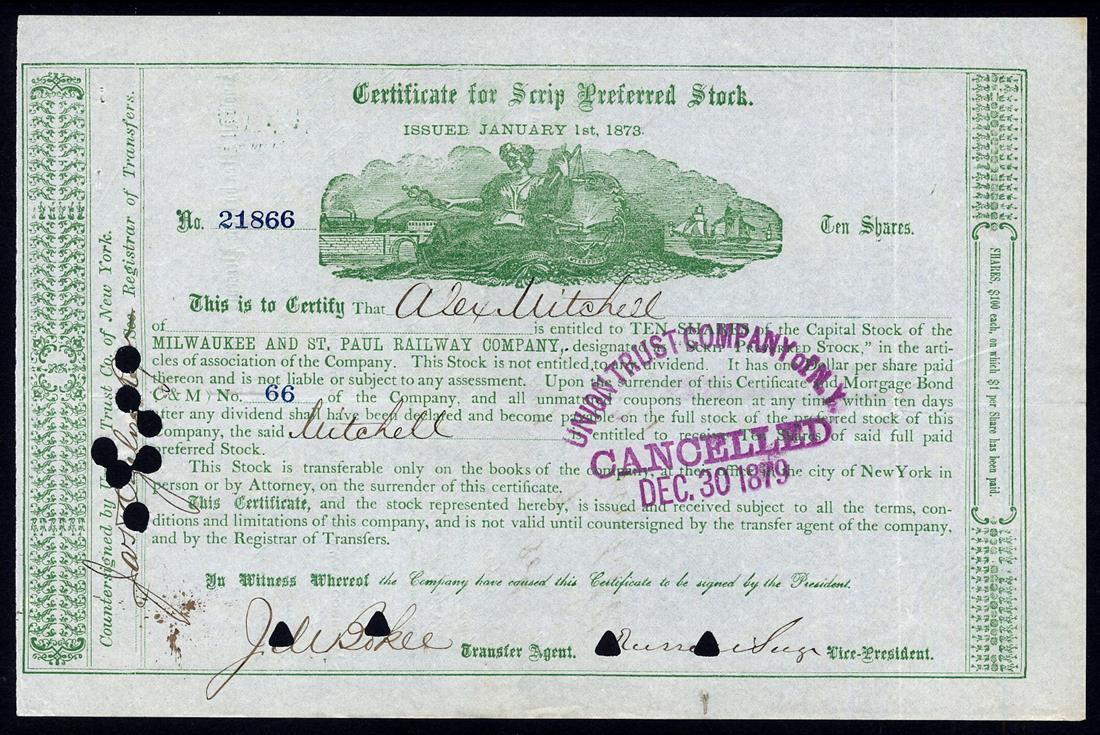 Certificate for Scrip Preferred Stock.
ISSUED JANUARY 1st, 1873.
No. 21866
Ten Shares.
This is to Certify That Alex Mitchell
of is entitled to TEN SHARES of the Capital Stock of the
MILWAUKEE AND ST. PAUL RAILWAY COMPANY, designated "SCRIP PREFERRED STOCK," in the arti-
cles of association of the Company. This Stock is not entitled to dividend. It has one Dollar per share paid
thereon and is not liable or subject to any assessment. Upon the surrender of this Certificate and Mortgage Bond
C & M) No. 66 of the Company, and all unmatured coupons thereon at any time within ten days
after any dividend shall have been declared and become payable on the full stock of the preferred stock of this
Company, the said Mitchell entitled to receive Ten Shares of said full paid
preferred Stock.
This Stock is transferable only on the books of the company, at the office in the city of New York in
person or by Attorney, on the surrender of this certificate.
This Certificate, and the stock represented hereby, is issued and received subject to all the terms, con-
ditions and limitations of this company, and is not valid until countersigned by the transfer agent of the company,
and by the Registrar of Transfers.
In Witness Whereof the Company have caused this Certificate to be signed by the President.
Transfer Agent.
Vice-President.
UNION TRUST COMPANY OF N.Y.
CANCELLED
DEC. 30 1879
Countersigned by Trust Co. of New York.
Registrar of Transfers.
SHARES, $100 each, on which $1 per Share has been paid.